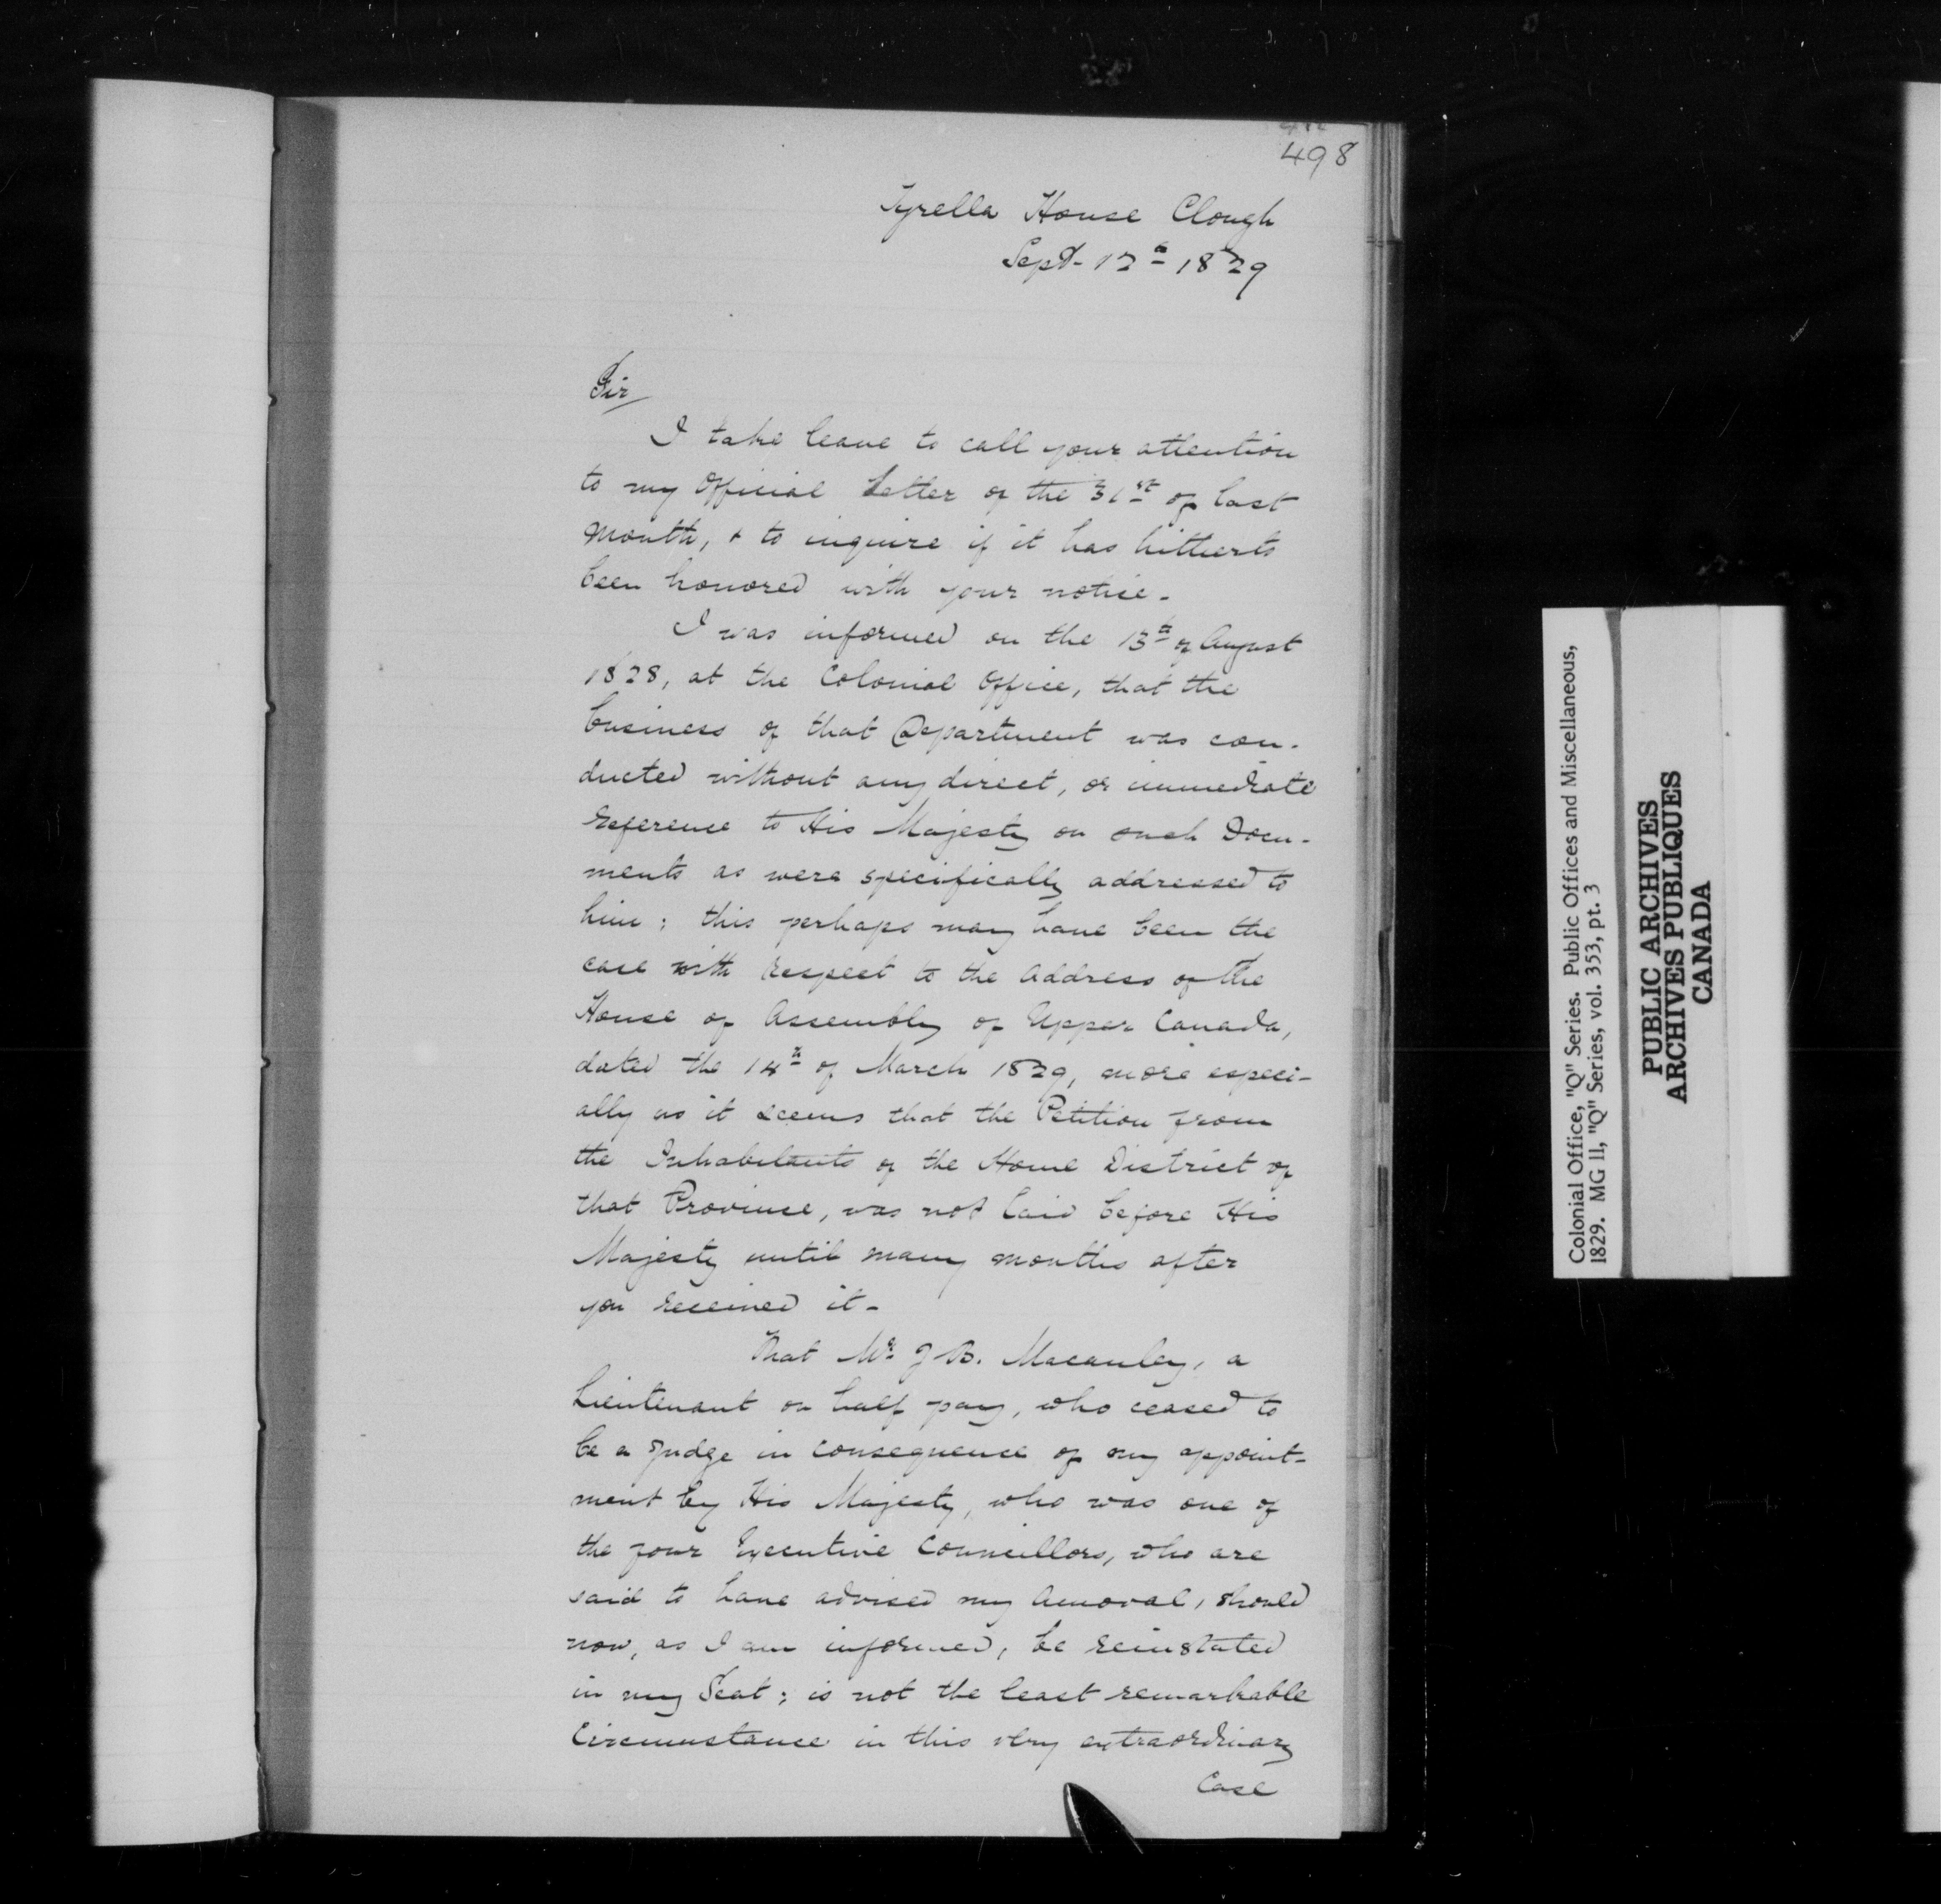 498
Tyrella House Clough
Sept- 12th 1829
Sir
I take leave to call your attention
to my Official Letter of the 31st of last
month, & to inquire if it has hitherto
been honored with your notice-
I was informed on the 13th of August
1828, at the Colonial Office, that the
business of that Department was con-
ducted without any direct, or immediate
reference to His Majesty on such Docu-
ments as were specifically addressed to
him; this perhaps may have been the
case with respect to the Address of the
House of Assembly of Upper Canada,
dated the 14th of March 1829, more especi-
ally as it seems that the Petition from
the Inhabitants of the Home District of
that Province, was not laid before His
Majesty until many months after
you received it-
That Mr J B. Macauley, a
Lieutenant on half pay, who ceased to
be a Judge in consequence of my appoint-
ment by His Majesty, who was one of
the four Executive Councillors, who are
said to have advised my Amoval, should
now, as I am informed, be reinstated
in my Seat; is not the least remarkable
Circumstance in this very extraordinary
Case
Colonial Office, "Q" Series. Public Offices and Miscellaneous,
1829. MG 11, "Q" Series, vol. 353, pt. 3
PUBLIC ARCHIVES
ARCHIVES PUBLIQUES
CANADA